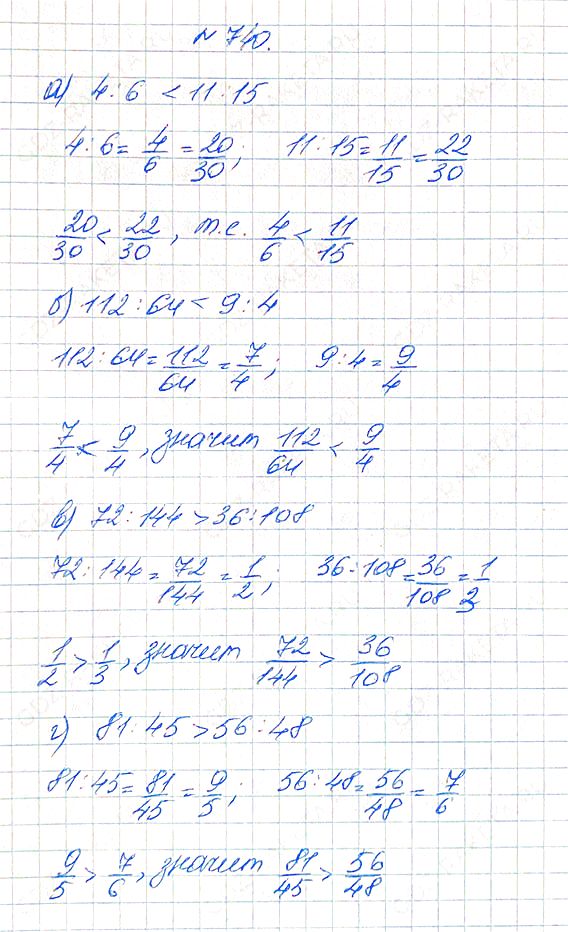 № 740.
а) 4 : 6 < 11 : 15
4 : 6 = 4/6 = 20/30; 11 : 15 = 11/15 = 22/30
20/30 < 22/30, т.е. 4/6 < 11/15
б) 112 : 64 < 9 : 4
112 : 64 = 112/64 = 7/4; 9 : 4 = 9/4
7/4 < 9/4, значит 112/64 < 9/4
в) 72 : 144 > 36 : 108
72 : 144 = 72/144 = 1/2; 36 : 108 = 36/108 = 1/3
1/2 > 1/3, значит 72/144 > 36/108
г) 81 : 45 > 56 : 48
81 : 45 = 81/45 = 9/5; 56 : 48 = 56/48 = 7/6
9/5 > 7/6, значит 81/45 > 56/48